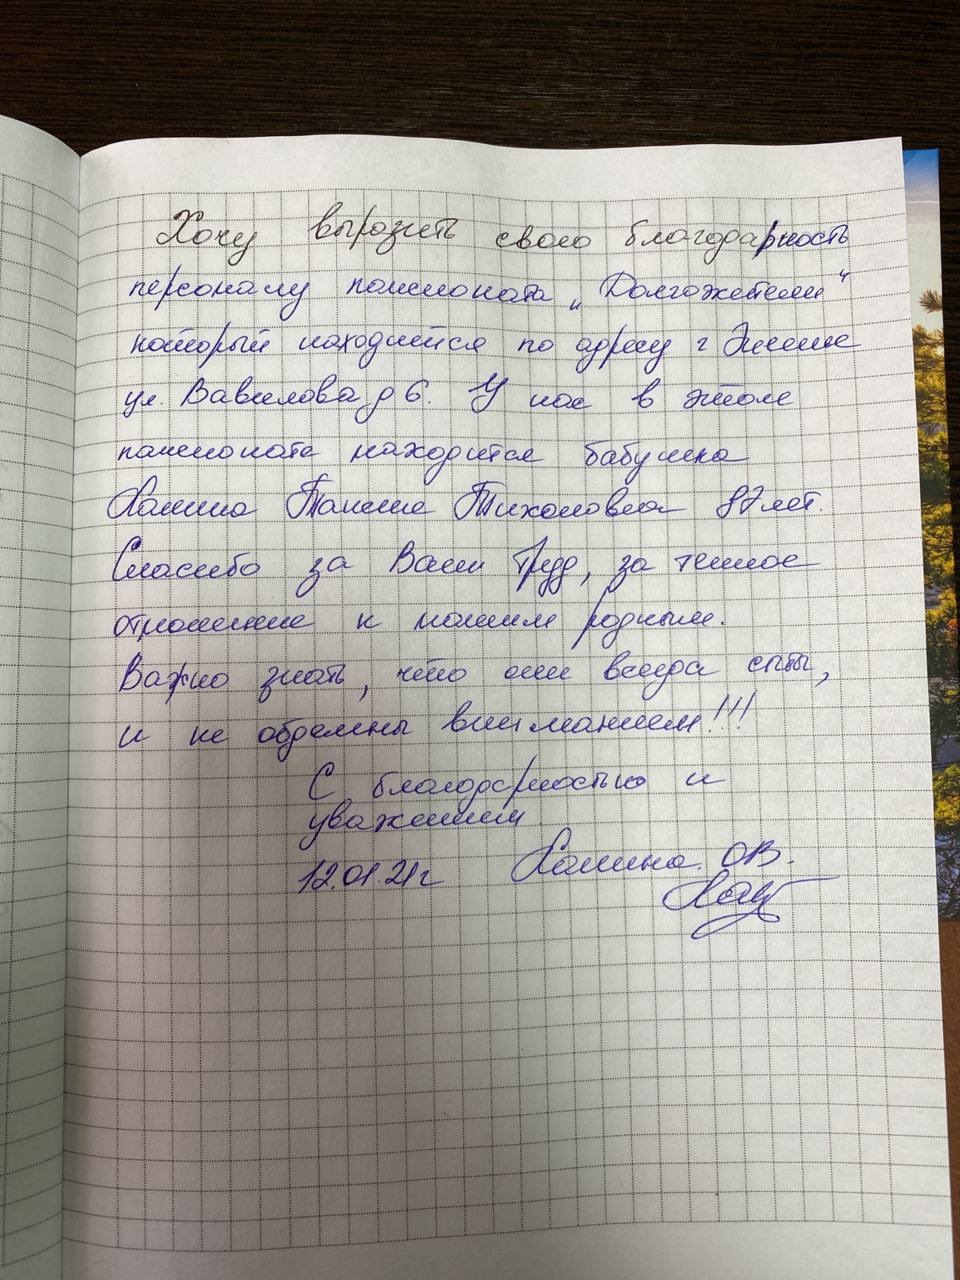 Хочу выразить свою благодарность
персоналу пансионата „Долгожители"
который находится по адресу г
ул. Вавилова д 6. У нас в этом
пансионате находится бабушка
Ханина Тихоновна 87 лет.
Спасибо за Ваш труд, за теплое
отношение к нашим родным.
Важно знать, что они всегда сыты,
и не обделены вниманием!!!
С благодарностью и
уважением
12.01.21г Ханина. ОВ.